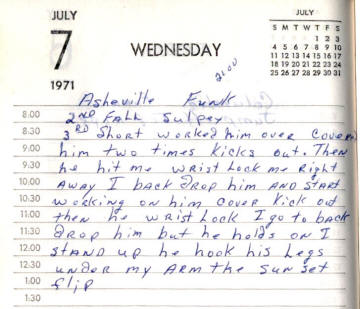 JULY
7
1971
WEDNESDAY
JULY
S M T W T F S
1 2 3
4 5 6 7 8 9 10
11 12 13 14 15 16 17
18 19 20 21 22 23 24
25 26 27 28 29 30 31
2600
Asheville Funk
8:00 2ND FALL Suplpey
8:30 3RD Short worked him over cover
9:00 him two times kicks out. Then
9:30 he hit me wrist lock me right
10:00 away I back drop him and start
10:30 working on him cover kick out
11:00 then he wrist lock I go to back
11:30 drop him but he holds on I
12:00 stand up he hook his legs
12:30 under my arm the sun set
1:00 flip
1:30